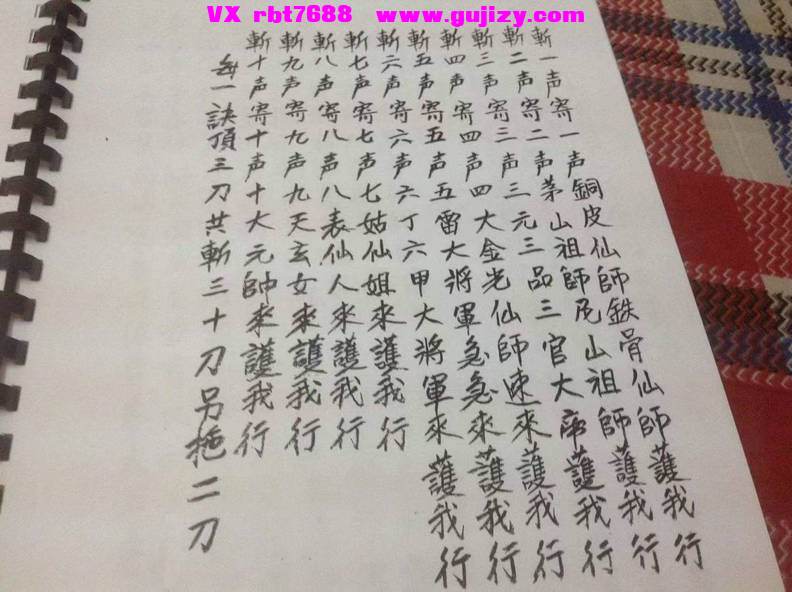 VX rbt7688 www.gujizy.com
斬一声寄一声銅皮仙師鉄骨仙師護我行
斬二声寄二声茅山祖師尼山祖師護我行
斬三声寄三声三元三品三官大帝護我行
斬四声寄四声四大金光仙師速來護我行
斬五声寄五声五雷大將軍急急來護我行
斬六声寄六声六丁六甲大將軍來護我行
斬七声寄七声七姑仙姐來護我行
斬八声寄八声八表仙人來護我行
斬九声寄九声九天玄女來護我行
斬十声寄十声十大元帥來護我行
每一訣頂三刀共斬三十刀另拖二刀